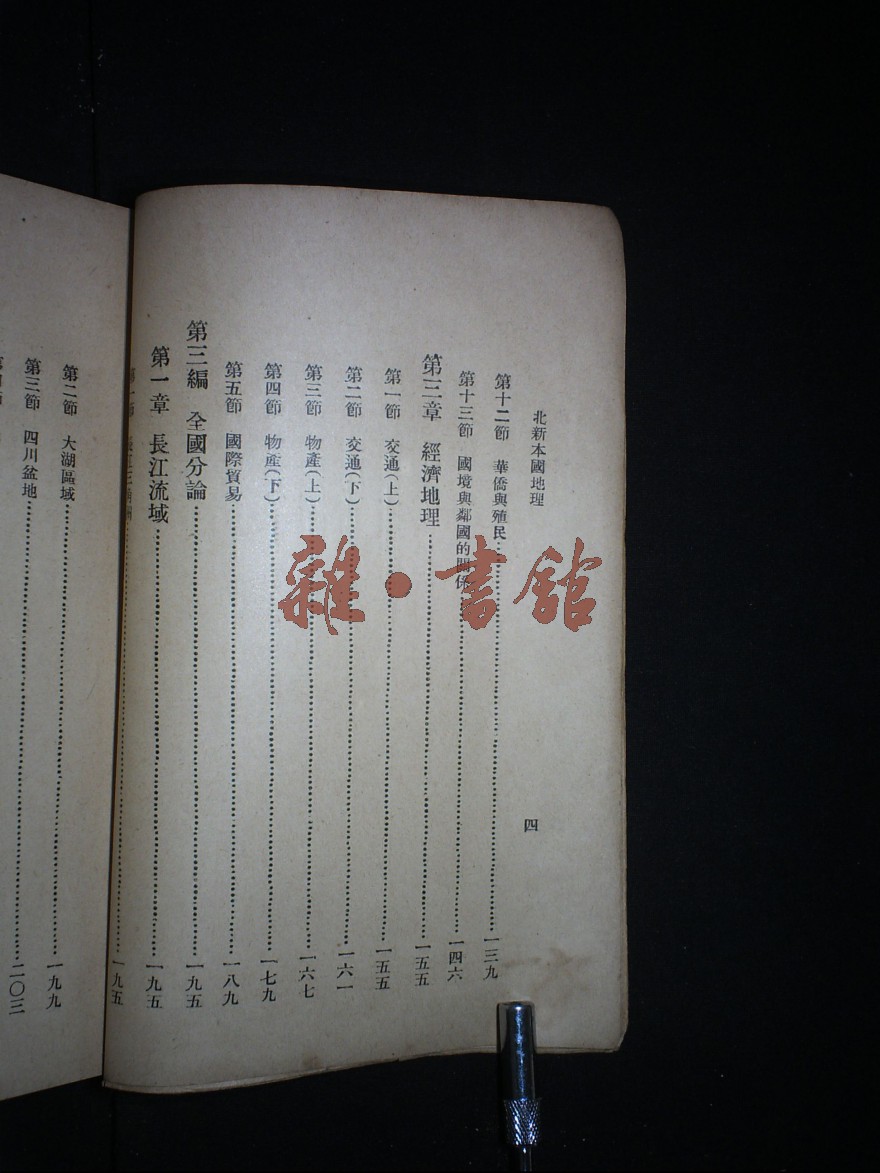 北新本國地理
四
第十二節 華僑與殖民……一三九
第十三節 國境與鄰國的關係……一四六
第三章 經濟地理……一五五
第一節 交通(上)……一五五
第二節 交通(下)……一六一
第三節 物產(上)……一六七
第四節 物產(下)……一七九
第五節 國際貿易……一八九
第三編 全國分論……一九五
第一章 長江流域……一九五
第一節……一九五
第二節 大湖區域……一九九
第三節 四川盆地……二〇三
雜·書館